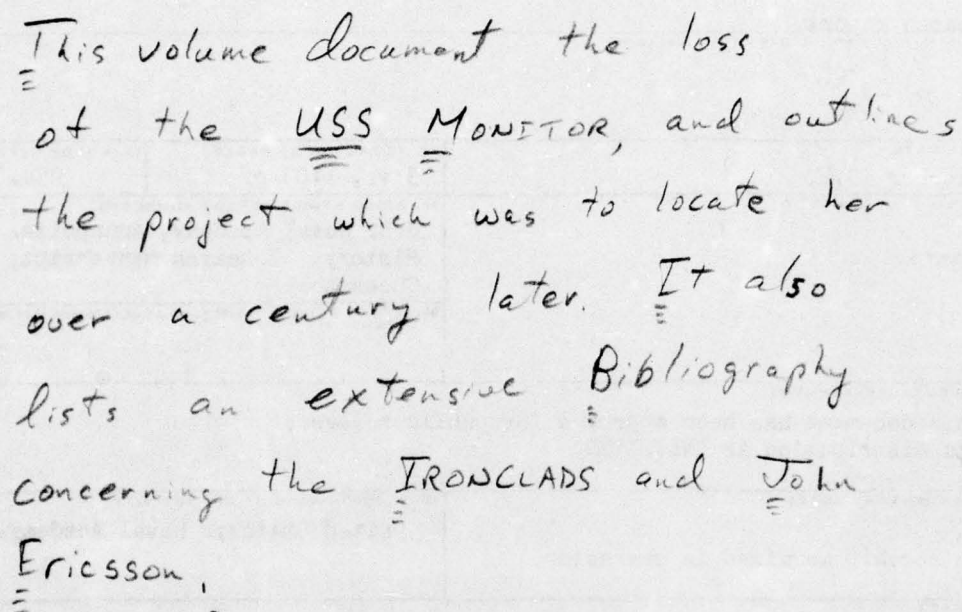 This volume document the loss
of the USS MONITOR, and outlines
the project which was to locate her
over a century later. It also
lists an extensive Bibliography
concerning the IRONCLADS and John
Ericsson.